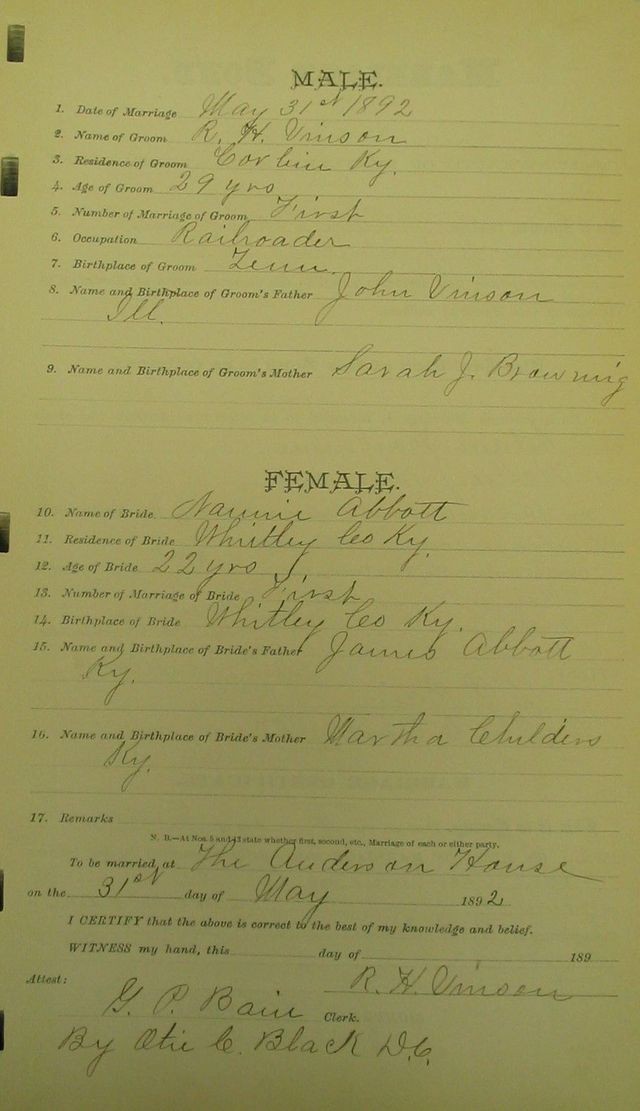 MALE.
1. Date of Marriage May 31st 1892
2. Name of Groom R. H. Vinson
3. Residence of Groom Corbin Ky.
4. Age of Groom 29 yrs
5. Number of Marriage of Groom First
6. Occupation Railroader
7. Birthplace of Groom Tenn.
8. Name and Birthplace of Groom's Father John Vinson
Ill.
9. Name and Birthplace of Groom's Mother Sarah J. Browning
FEMALE.
10. Name of Bride Nannie Abbott
11. Residence of Bride Whitley Co Ky.
12. Age of Bride 22 yrs
13. Number of Marriage of Bride First
14. Birthplace of Bride Whitley Co Ky.
15. Name and Birthplace of Bride's Father James Abbott
Ky.
16. Name and Birthplace of Bride's Mother Martha Childers
Ky.
17. Remarks
N. B.—At Nos. 5 and 13 state whether first, second, etc., Marriage of each or either party.
To be married at The Anderson House
on the 31st day of May 1892
I CERTIFY that the above is correct to the best of my knowledge and belief.
WITNESS my hand, this day of 189
R. H. Vinson
Attest:
G. P. Bain Clerk.
By C. Black D.C.